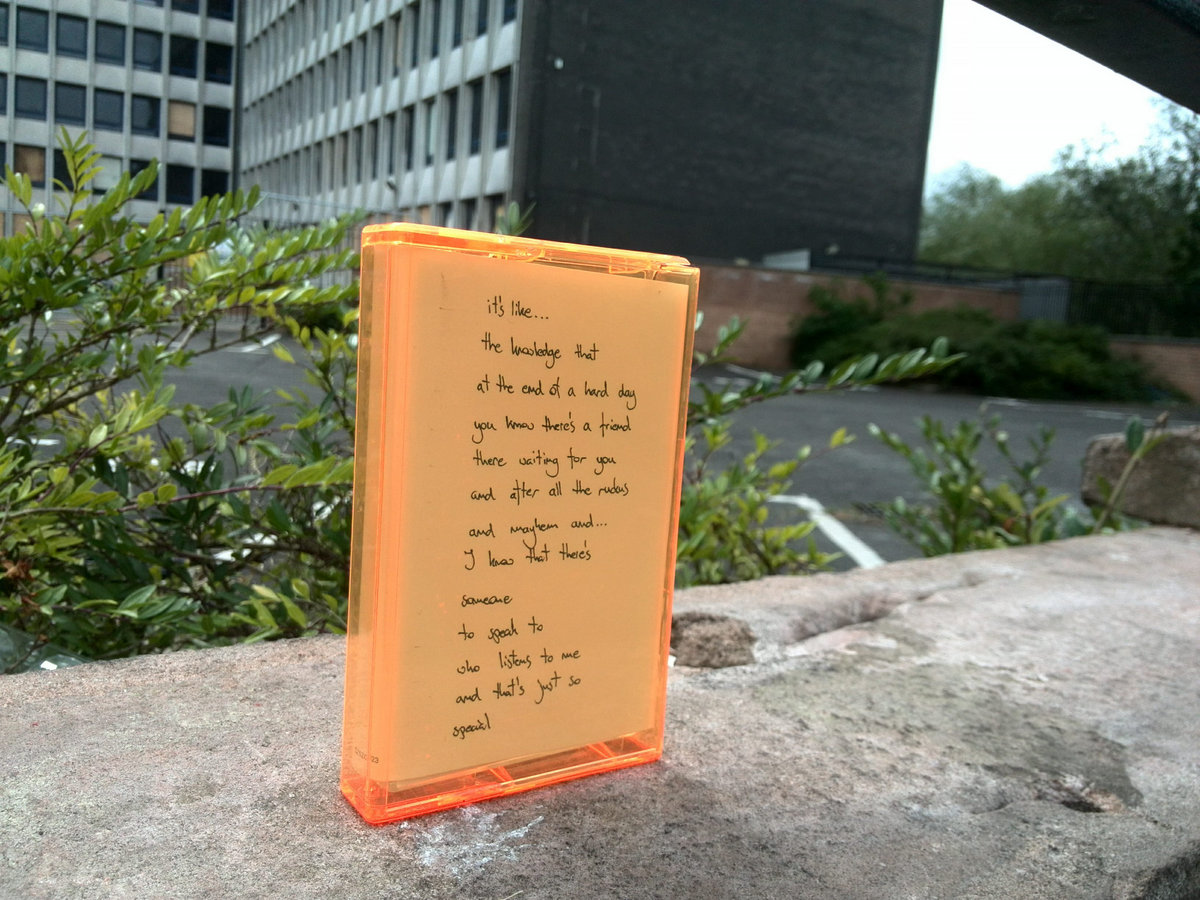 it's like...
the knowledge that
at the end of a hard day
you know there's a friend
there waiting for you
and after all the
and mayhem and...
I know that there's
someone
to speak to
who listens to me
and that's just so
special